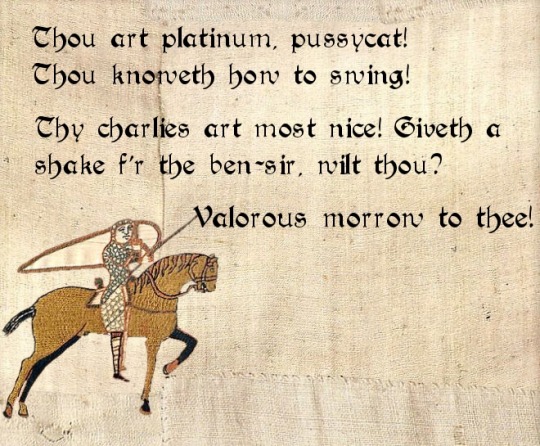 Thou art platinum, pussycat!
Thou knoweth how to swing!
Thy charlies art most nice! Giveth a
shake f'r the ben-sir, wilt thou?
Valorous morrow to thee!